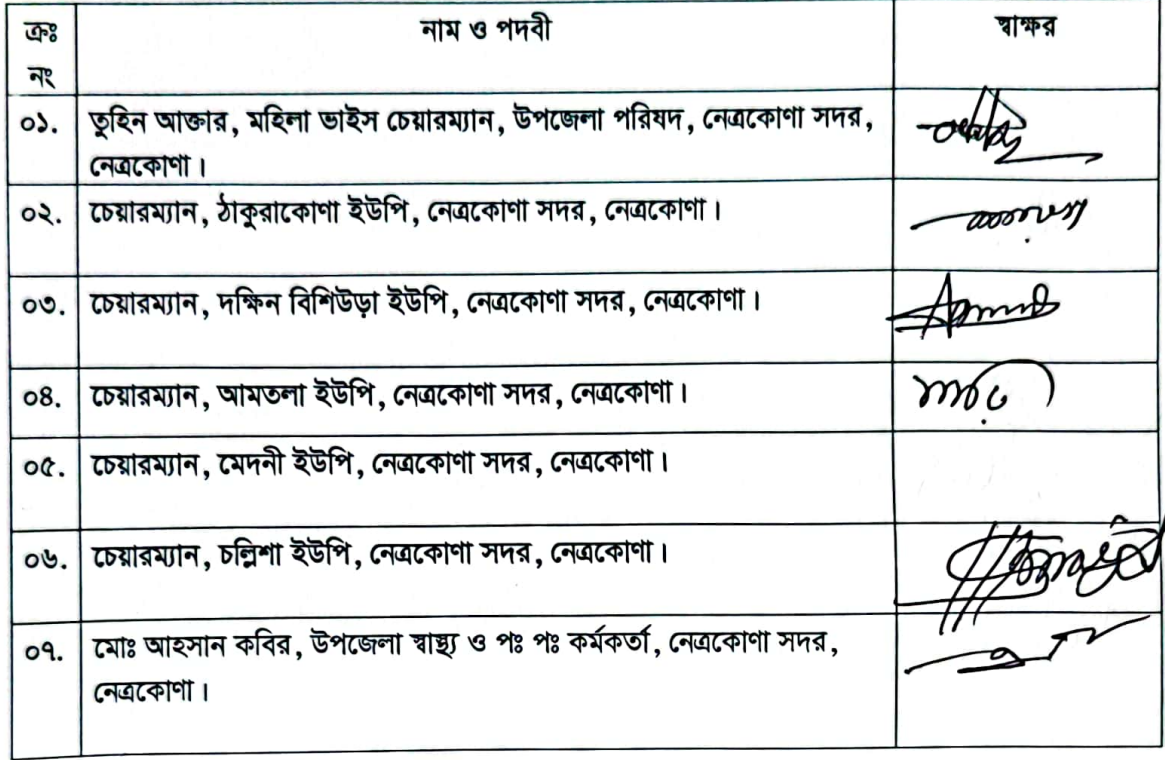 ক্রঃ নাম ও পদবী স্বাক্ষর
নং
০১. তুহিন আক্তার, মহিলা ভাইস চেয়ারম্যান, উপজেলা পরিষদ, নেত্রকোণা সদর,
নেত্রকোণা।
০২. চেয়ারম্যান, ঠাকুরাকোণা ইউপি, নেত্রকোণা সদর, নেত্রকোণা।
০৩. চেয়ারম্যান, দক্ষিন বিশিউড়া ইউপি, নেত্রকোণা সদর, নেত্রকোণা।
০৪. চেয়ারম্যান, আমতলা ইউপি, নেত্রকোণা সদর, নেত্রকোণা।
০৫. চেয়ারম্যান, মেদনী ইউপি, নেত্রকোণা সদর, নেত্রকোণা।
০৬. চেয়ারম্যান, চল্লিশা ইউপি, নেত্রকোণা সদর, নেত্রকোণা।
০৭. মোঃ আহসান কবির, উপজেলা স্বাস্থ্য ও পঃ পঃ কর্মকর্তা, নেত্রকোণা সদর,
নেত্রকোণা।